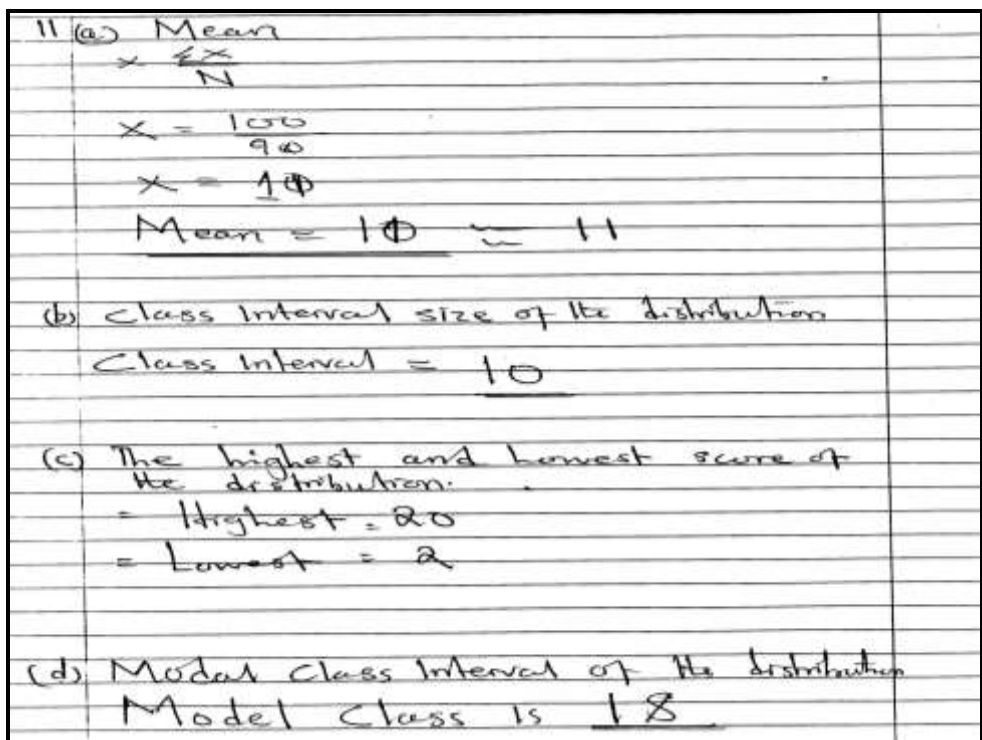 11 (a) Mean
x Σx
N
x = 100
90
x = 10
Mean = 10 ≈ 11
(b) Class Interval size of the distribution
Class Interval = 10
(c) The highest and Lowest score of
the distribution.
= Highest = 20
= Lowest = 2
(d) Modal Class Interval of the distribution
Model Class is 18